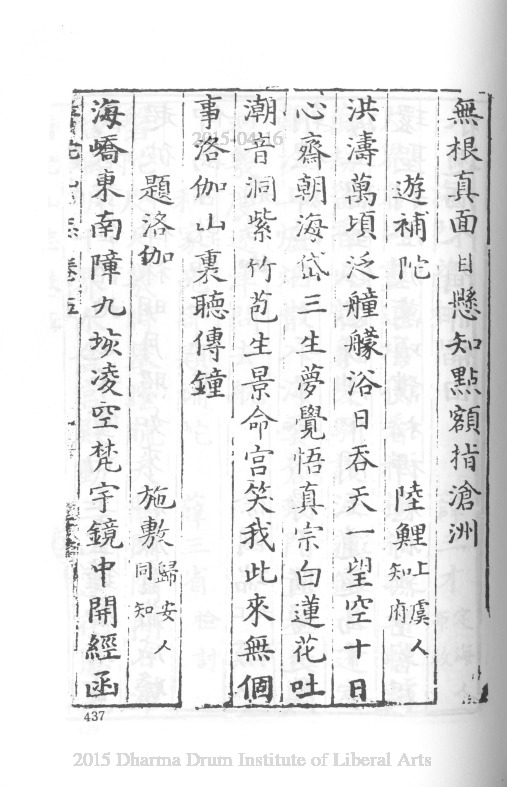 無根真面目懸知點額指滄洲
遊補陀 陸鯉上虞人知府
洪濤萬頃泛艟艨浴日吞天一望空十日
心齋朝海岱三生夢覺悟真宗白蓮花吐
潮音洞紫竹苞生景命宮笑我此來無個
事洛伽山裏聽傳鐘
題洛伽 施敷歸安人同知
海嶠東南障九垓凌空梵宇鏡中開經函
陀山志卷五
437
2015-04-16
2015 Dharma Drum Institute of Liberal Arts